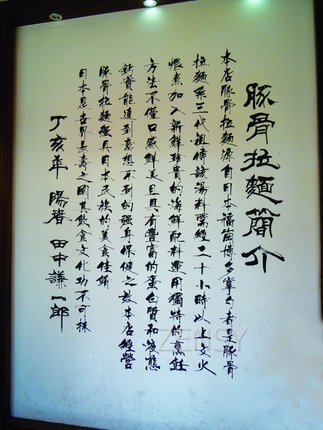 豚骨拉麵簡介
本店豚骨拉麵源自日本福岡博多掌勺者是豚骨
拉麵系三代祖傳該湯料需經二十小時以上文火
燉煮加入新鮮珍貴的海鮮配料運用獨特的烹飪
方法不僅口感鮮美且具有豐富的蛋白質和液態
鈣質能達到意想不到的強身保健之效本店經營
豚骨拉麵極具日本民族的美食佳餚
日本是世界長壽之國其飲食文化功不可抹
丁亥年 陽春 田中謙一郎